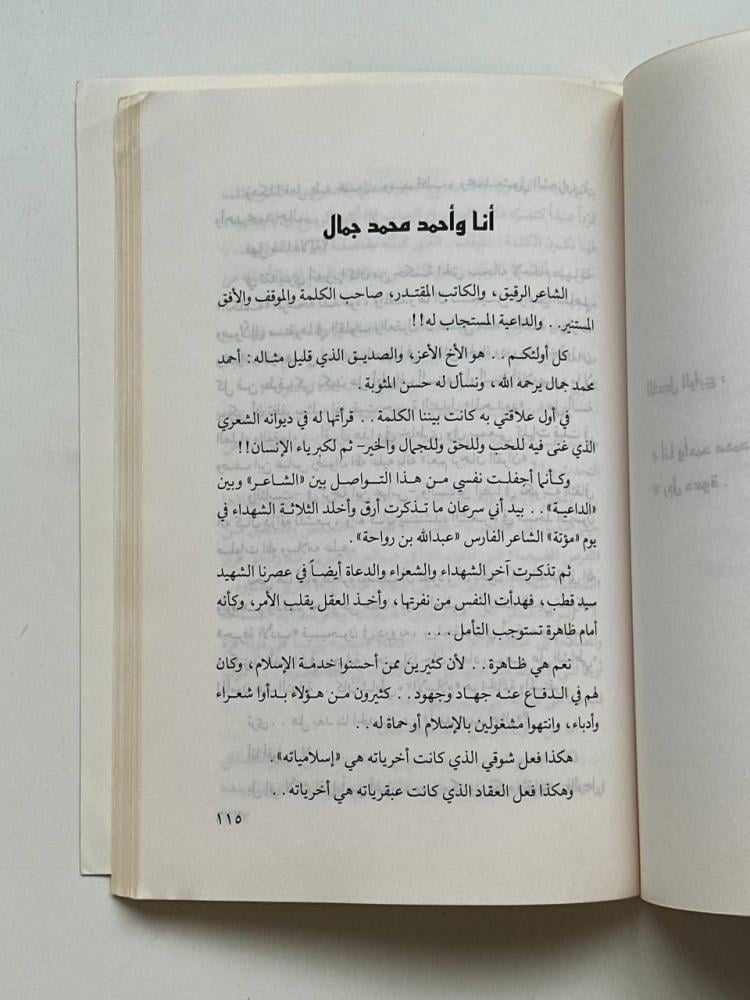 أنا وأحمد محمد جمال
الشاعر الرقيق، والكاتب المقتدر، صاحب الكلمة والموقف والأفق
المستنير.. والداعية المستجاب له!!
كل أولئكم.. هو الأخ الأعز، والصديق الذي قليل مثاله: أحمد
محمد جمال يرحمه الله، ونسأل له حسن المثوبة.
في أول علاقتي به كانت بيننا الكلمة.. قرأتها له في ديوانه الشعري
الذي غنى فيه للحب وللحق وللجمال والخير- ثم لكبرياء الإنسان!!
وكأنما أجفلت نفسي من هذا التواصل بين «الشاعر» وبين
«الداعية».. بيد أني سرعان ما تذكرت أرق وأخلد الثلاثة الشهداء في
يوم «مؤتة» الشاعر الفارس «عبدالله بن رواحة».
ثم تذكرت آخر الشهداء والشعراء والدعاة أيضاً في عصرنا الشهيد
سيد قطب، فهدأت النفس من نفرتها، وأخذ العقل يقلب الأمر، وكأنه
أمام ظاهرة تستوجب التأمل...
نعم هي ظاهرة.. لأن كثيرين ممن أحسنوا خدمة الإسلام، وكان
لهم في الدفاع عنه جهاد وجهود.. كثيرون من هؤلاء بدأوا شعراء
وأدباء، وانتهوا مشغولين بالإسلام أو حماة له..
هكذا فعل شوقي الذي كانت أخرياته هي «إسلامياته».
وهكذا فعل العقاد الذي كانت عبقرياته هي أخرياته..
١١٥